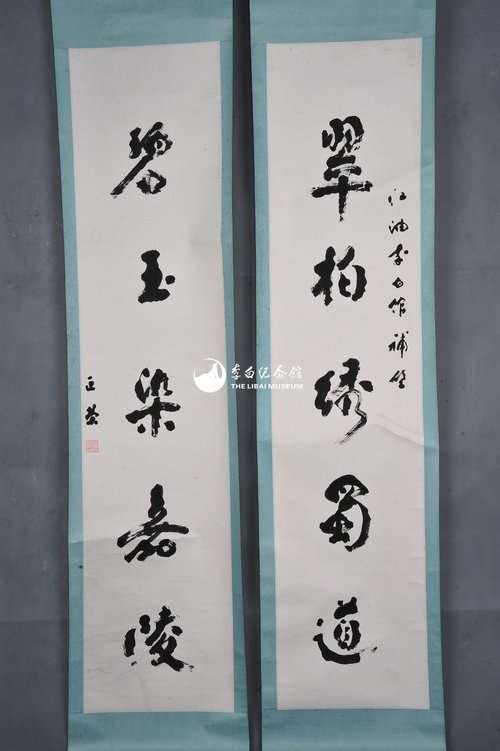 翠柏绣蜀道
江油李白馆补壁
碧玉染嘉陵
正荣
李白纪念馆
THE LIBAI MUSEUM